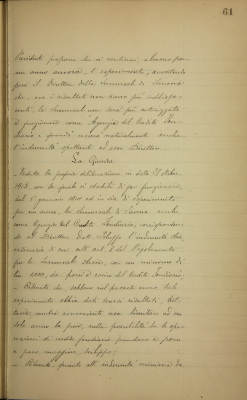 61
Presidente propone che si continui, almeno per
un anno ancora, l'esperimento, avvertendo
però il Direttore della Succursale di Savona
che, ove i risultati non siano più soddisfa-
centi, la Succursale non sarà più autorizzata
a funzionare come Agenzia del Credito Fon-
diario e quindi verrà naturalmente anche
l'indennità spettante ad esso Direttore.
La Giunta
Veduta la propria deliberazione in data
1913, con la quale si stabilì di far funzionare,
dal 1° gennaio 1914 ed in via di esperimento
per un anno, la Succursale di Savona anche
come Agenzia del Credito Fondiario, corrisponden-
do al Direttore l'indennità
ordinaria di cui all'art. del Regolamento
per le Succursali stesse, con un minimo di
Lire 1000, da porsi a carico del Credito Fondiario;
- Ritenuto che, sebbene nel passato anno tale
esperimento abbia dato scarsi risultati, tut-
tavia sembra conveniente non limitare ad un
solo anno la prova, nella possibilità che le ope-
razioni di credito fondiario prendano a poco
a poco maggiore sviluppo;
- Ritenuto, quanto all'indennità minima da